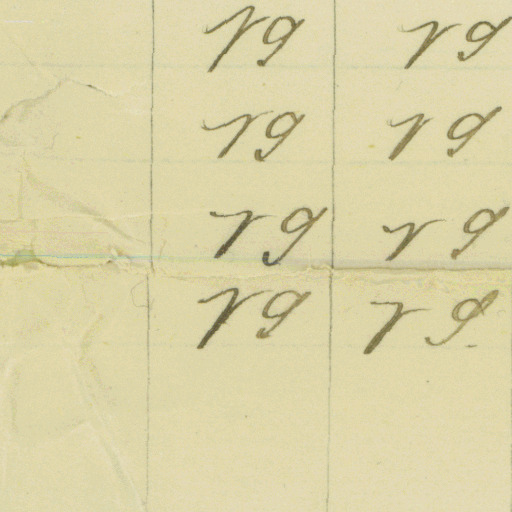 79 79
79 79
79 79
79 79